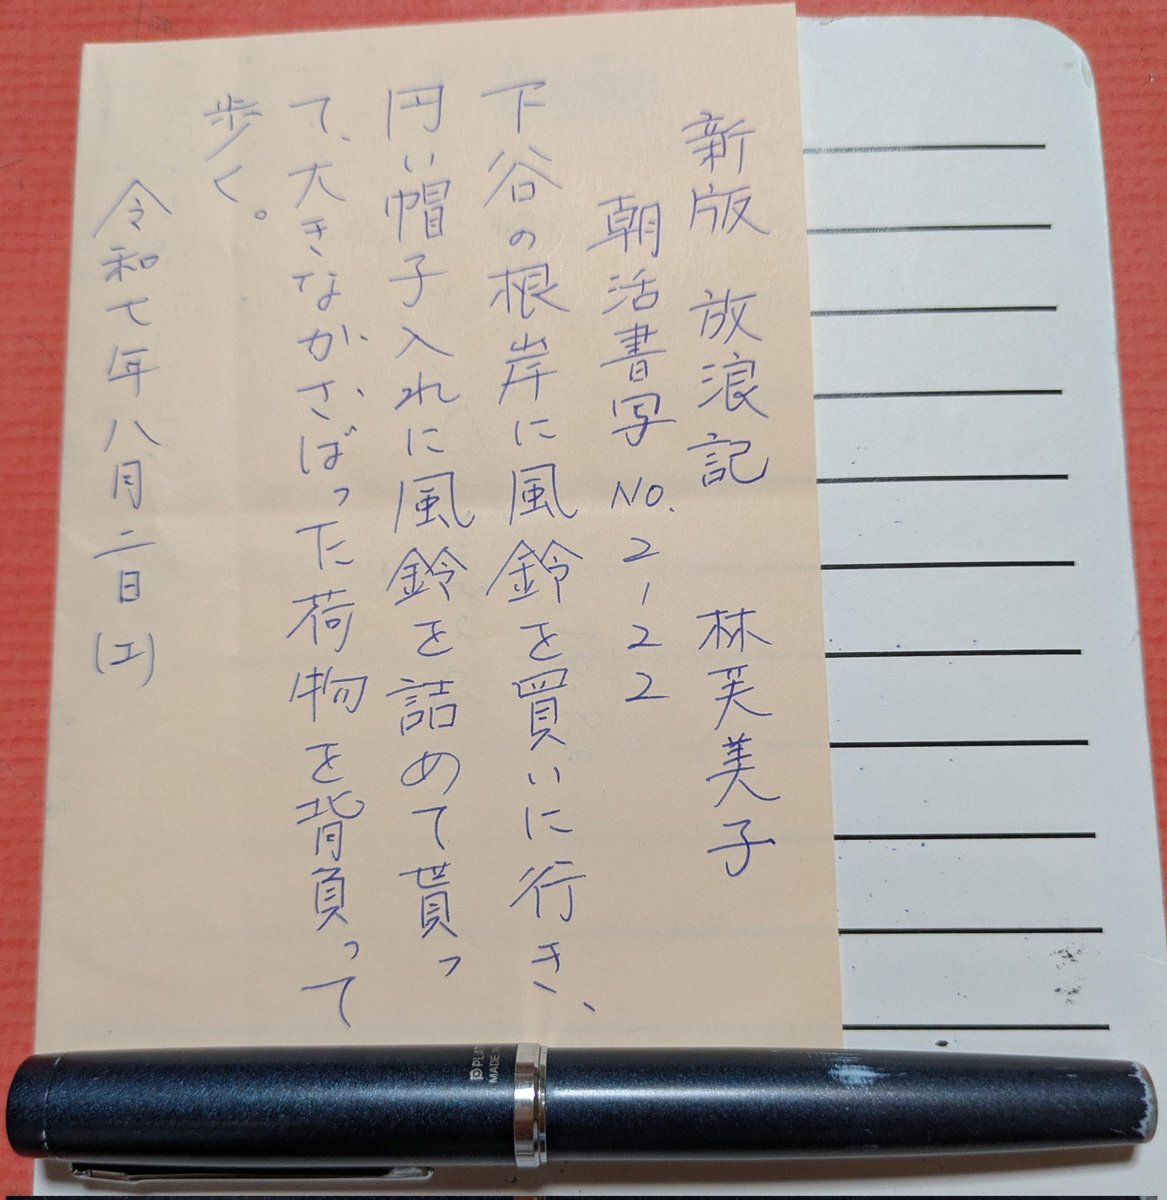 新版 放浪記 林芙美子
朝活書写 No.2-22
下谷の根岸に風鈴を買いに行き、
円い帽子入れに風鈴を詰めて貰っ
て、大きなかさばった荷物を背負って
歩く。
令和七年八月二日(土)
PLAT
MADE IN